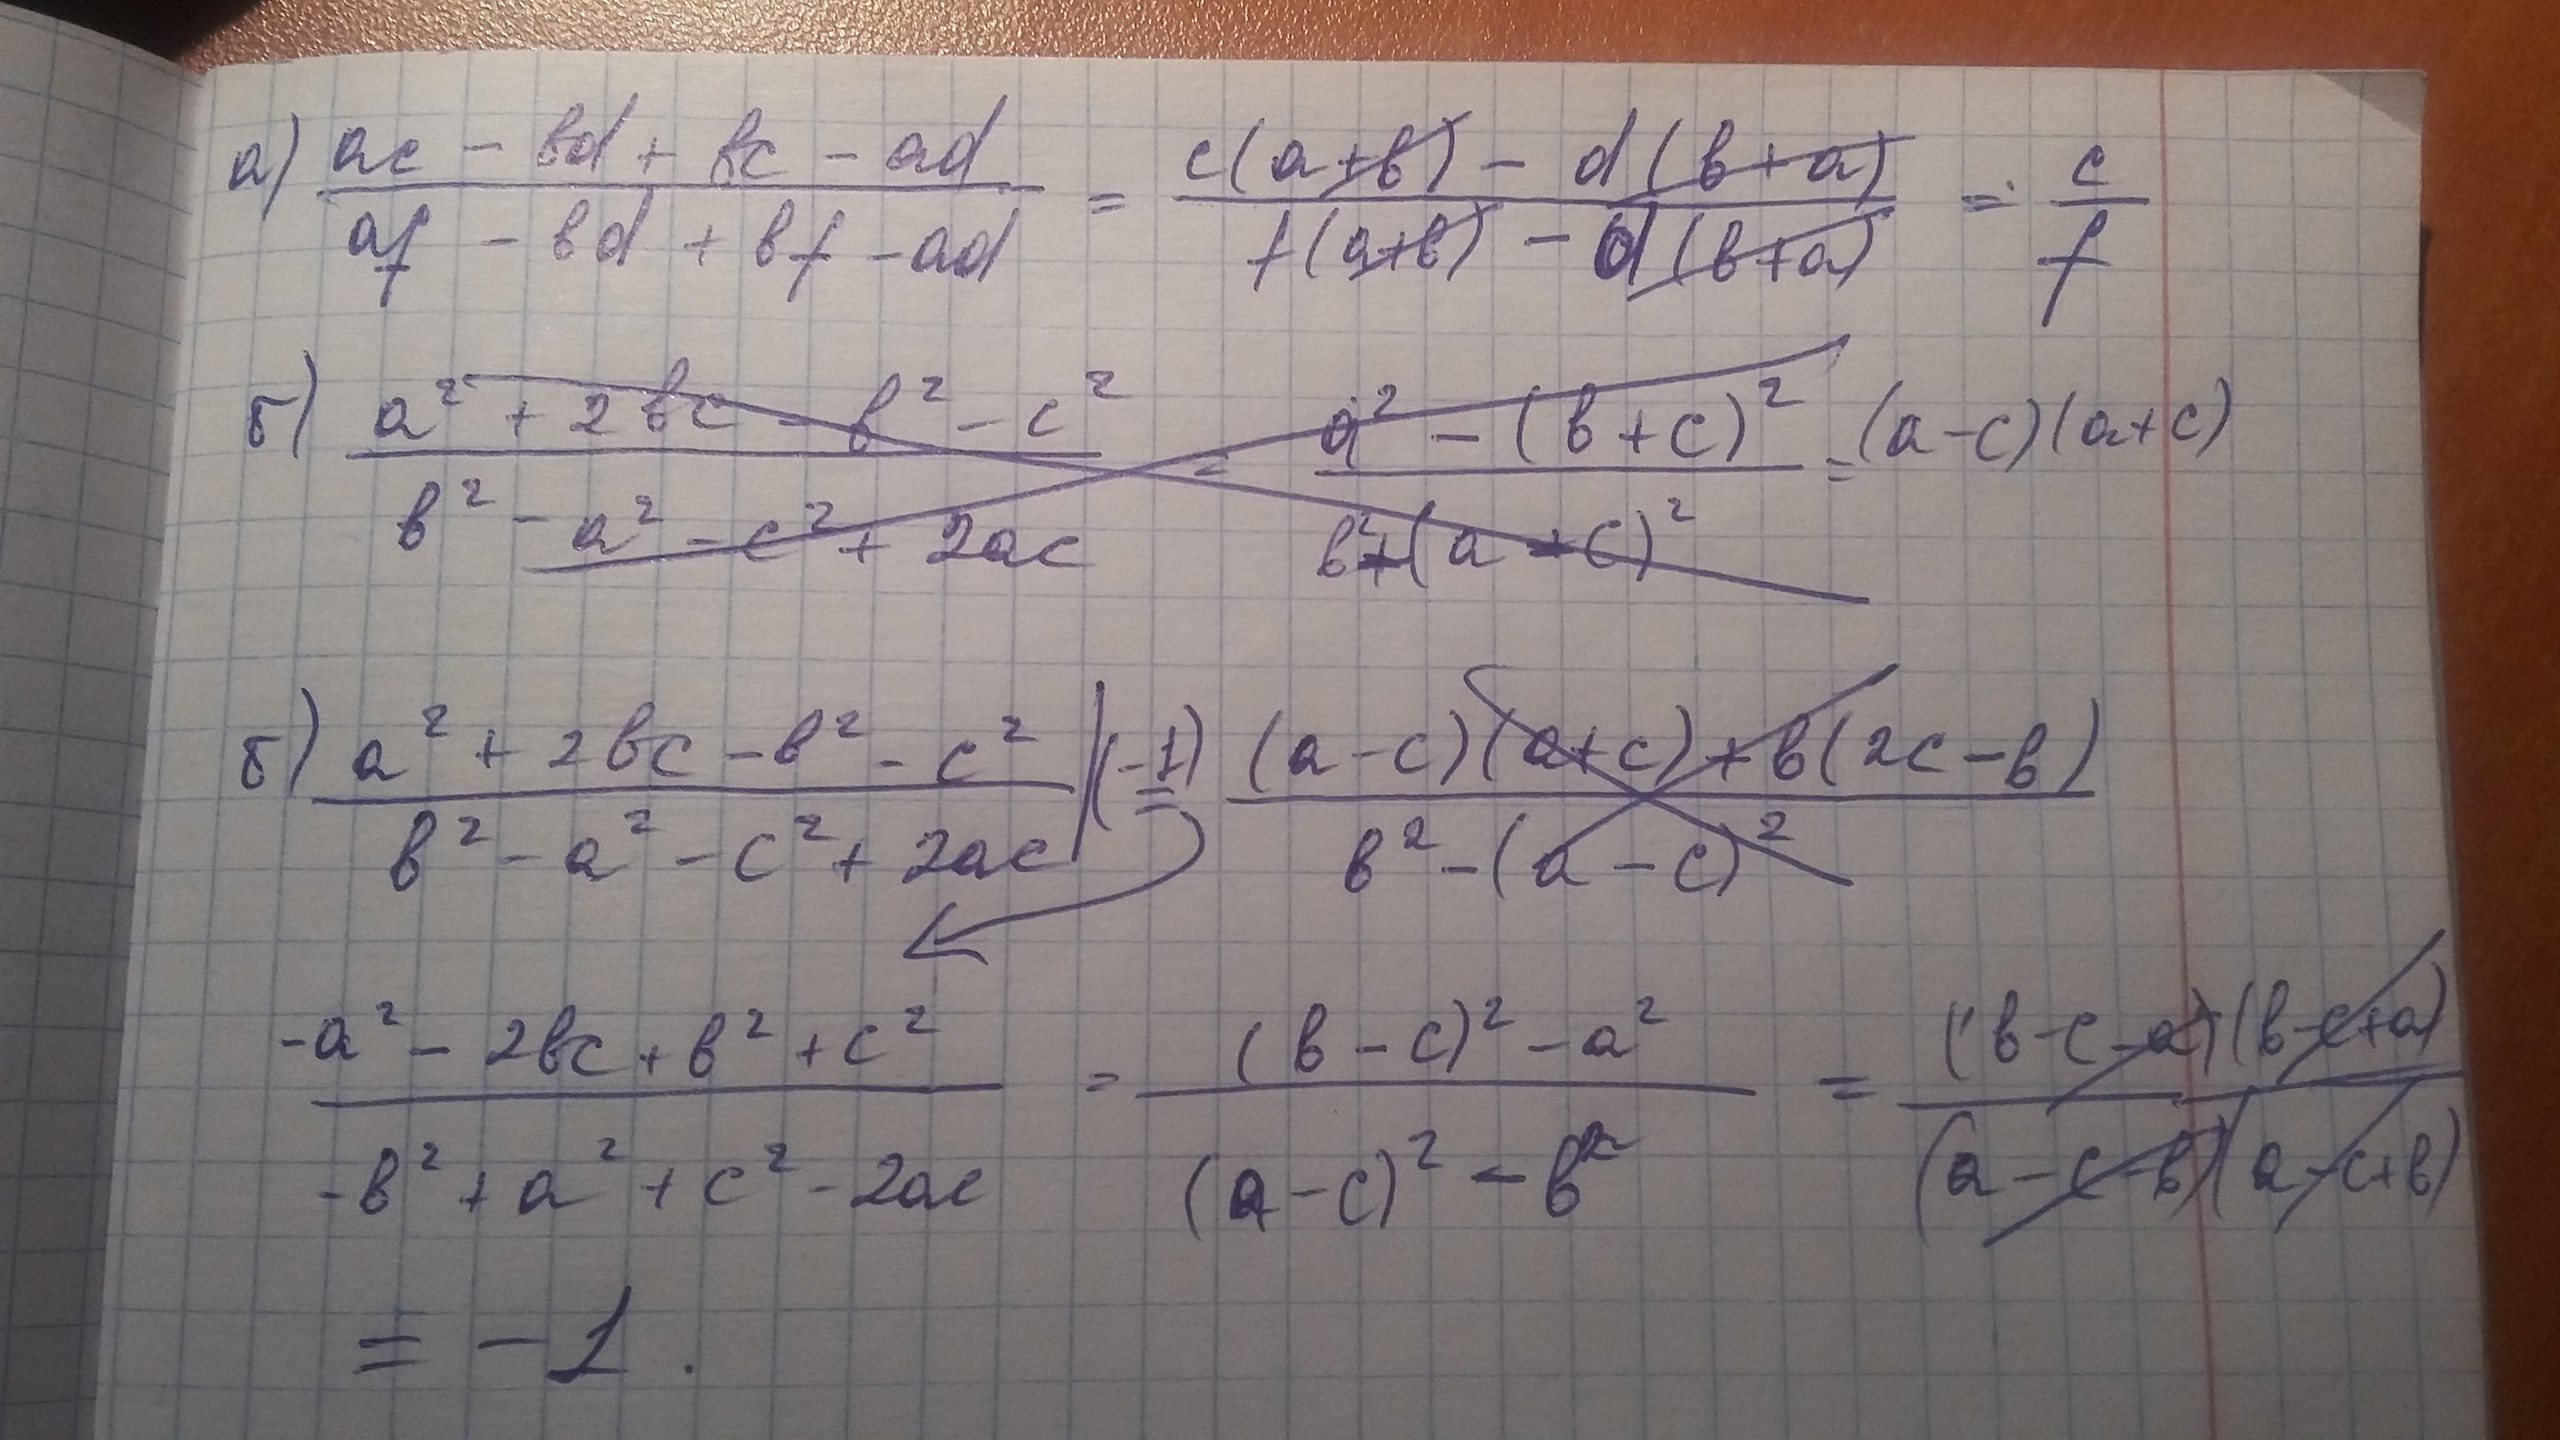 а) (ac - bd + bc - ad)/(af - bd + bf - ad) = (c(a+b) - d(b+a))/(f(a+b) - d(b+a)) = c/f
б) (a² + 2bc - b² - c²)/(b² - a² - c² + 2ac) = (a² - (b+c)²)/(b² + (a - c)²) = (a-c)(a+c)
б) (a² + 2bc - b² - c²)/(b² - a² - c² + 2ac) |(-1) = ((a-c)(a+c) + b(2c-b))/(b² - (a-c)²)
(-a² - 2bc + b² + c²)/(-b² + a² + c² - 2ac) = ((b-c)² - a²)/((a-c)² - b²) = ((b-c-a)(b-c+a))/((a-c-b)(a-c+b))
= -1.